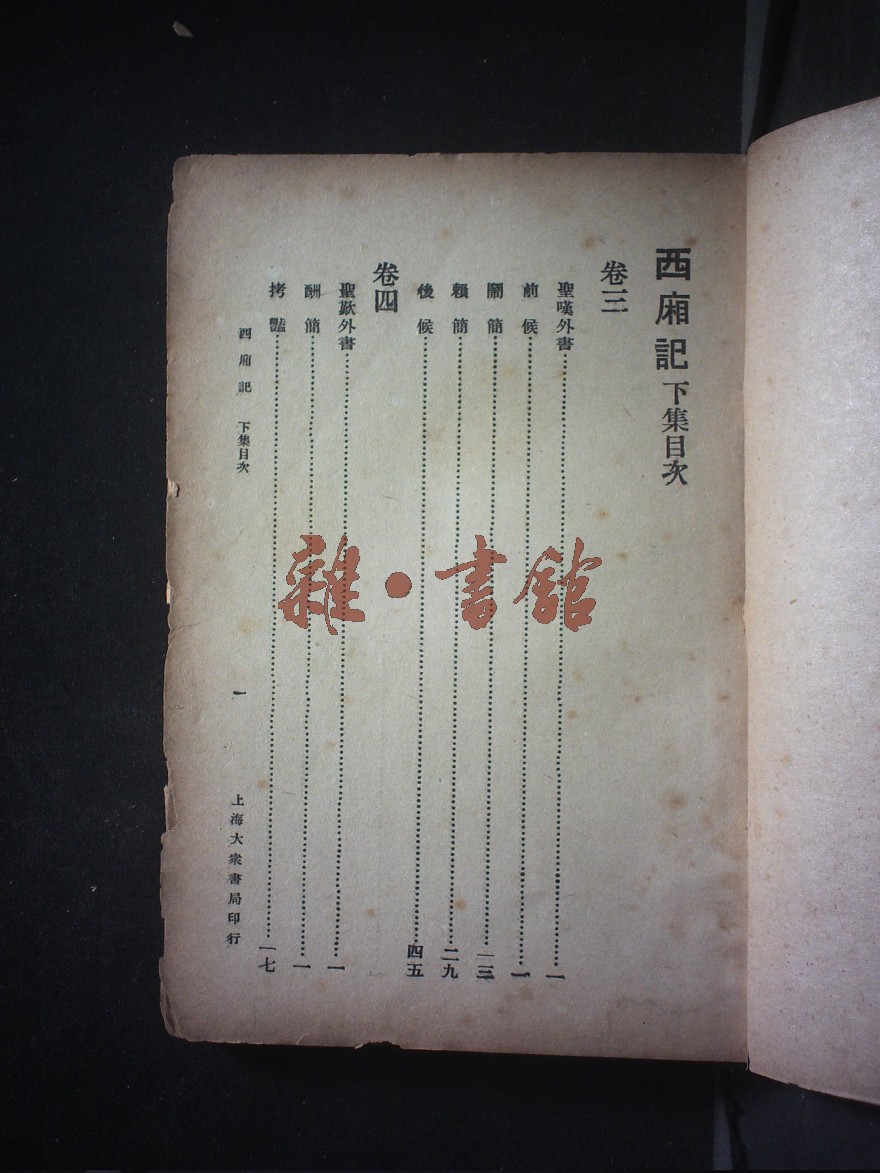 西廂記 下集目次
卷三
聖嘆外書……一
前候……一
鬧簡……一三
賴簡……二九
後候……四五
卷四
聖歎外書……一
酬簡……一
拷豔……一七
西廂記 下集目次 一 上海大衆書局印行
雜·書館